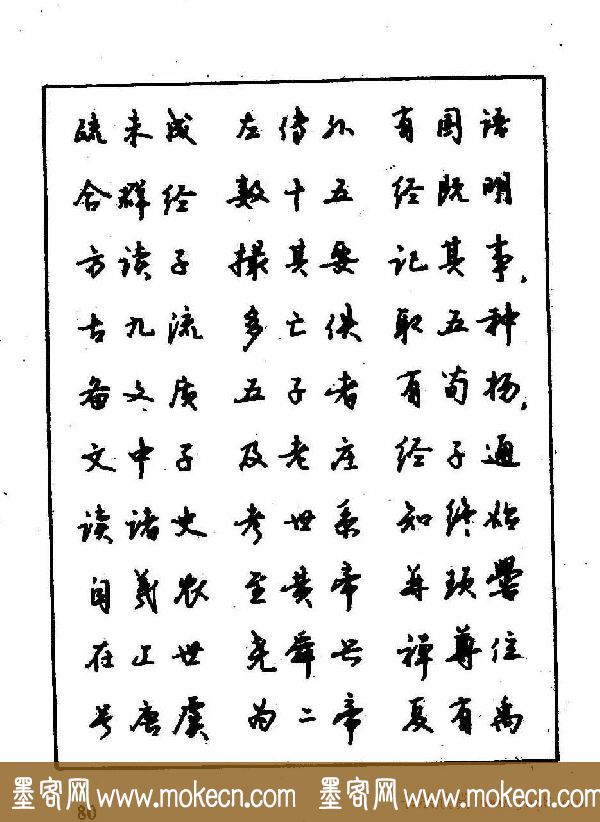 疏未成 左传外 有国语
合群经 数十五 经既明
方读子 撮其要 记其事,
古九流 多亡佚 取五种
备文质 五子者 有荀扬,
文中子 及老庄 经子通
读诸史 考世系 知终始
自羲农 至黄帝 并顼喾
在上世 尧舜兴 禅尊位
号唐虞 为二帝 夏有禹
墨客网 www.mokecn.com 墨客网 www.mokecn.com
80